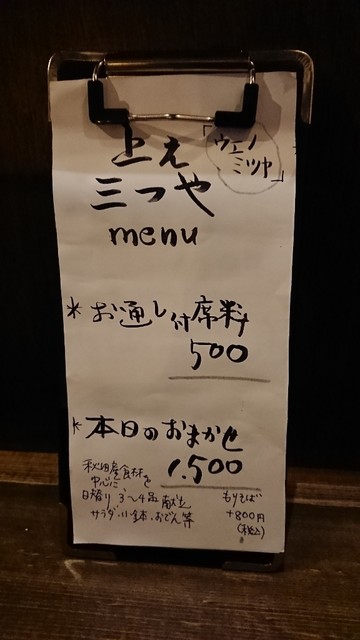 上ぇ
三つや
「ウエノ
ミツヤ」
menu
* お通し付席料
500
* 本日のおまかせ
1.500
秋田産食材を
中心に
日替り3〜4品献立
サラダ.小鉢.おでん等
もりそば
+800円
(税込)